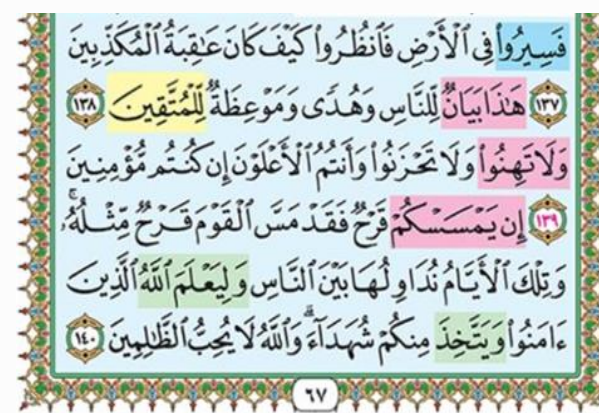 فَسِيرُوا۟ فِي ٱلْأَرْضِ فَٱنظُرُوا۟ كَيْفَ كَانَ عَٰقِبَةُ ٱلْمُكَذِّبِينَ
١٣٧ هَٰذَا بَيَانٌ لِّلنَّاسِ وَهُدًى وَمَوْعِظَةٌ لِّلْمُتَّقِينَ ١٣٨
وَلَا تَهِنُوا۟ وَلَا تَحْزَنُوا۟ وَأَنتُمُ ٱلْأَعْلَوْنَ إِن كُنتُم مُّؤْمِنِينَ
١٣٩ إِن يَمْسَسْكُمْ قَرْحٌ فَقَدْ مَسَّ ٱلْقَوْمَ قَرْحٌ مِّثْلُهُۥۚ
وَتِلْكَ ٱلْأَيَّامُ نُدَاوِلُهَا بَيْنَ ٱلنَّاسِ وَلِيَعْلَمَ ٱللَّهُ ٱلَّذِينَ
ءَامَنُوا۟ وَيَتَّخِذَ مِنكُمْ شُهَدَآءَۗ وَٱللَّهُ لَا يُحِبُّ ٱلظَّٰلِمِينَ ١٤٠
٦٧